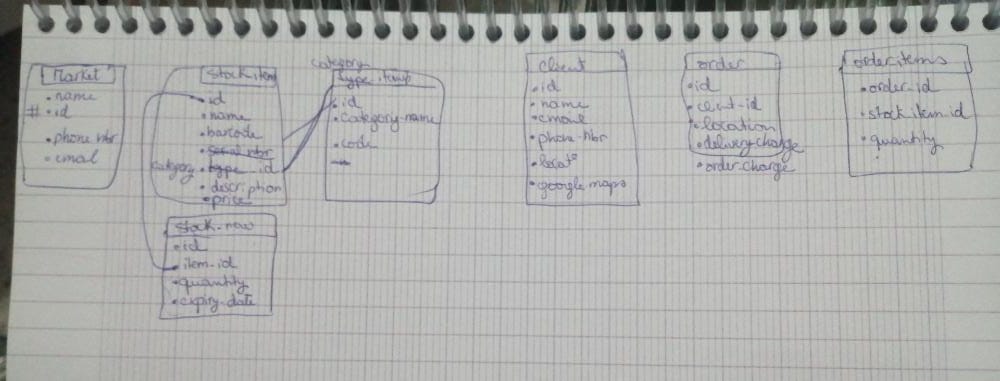 Market
name
# id
phone nbr
email
stock item
id
name
barcode
serial nbr
category type id
description
price
stock-now
id
item-id
quantity
expiry-date
category
type
id
category-name
code
client
id
name
email
phone-nbr
locat°
google maps
order
id
client-id
location
delivery charge
order charge
order items
order-id
stock item-id
quantity